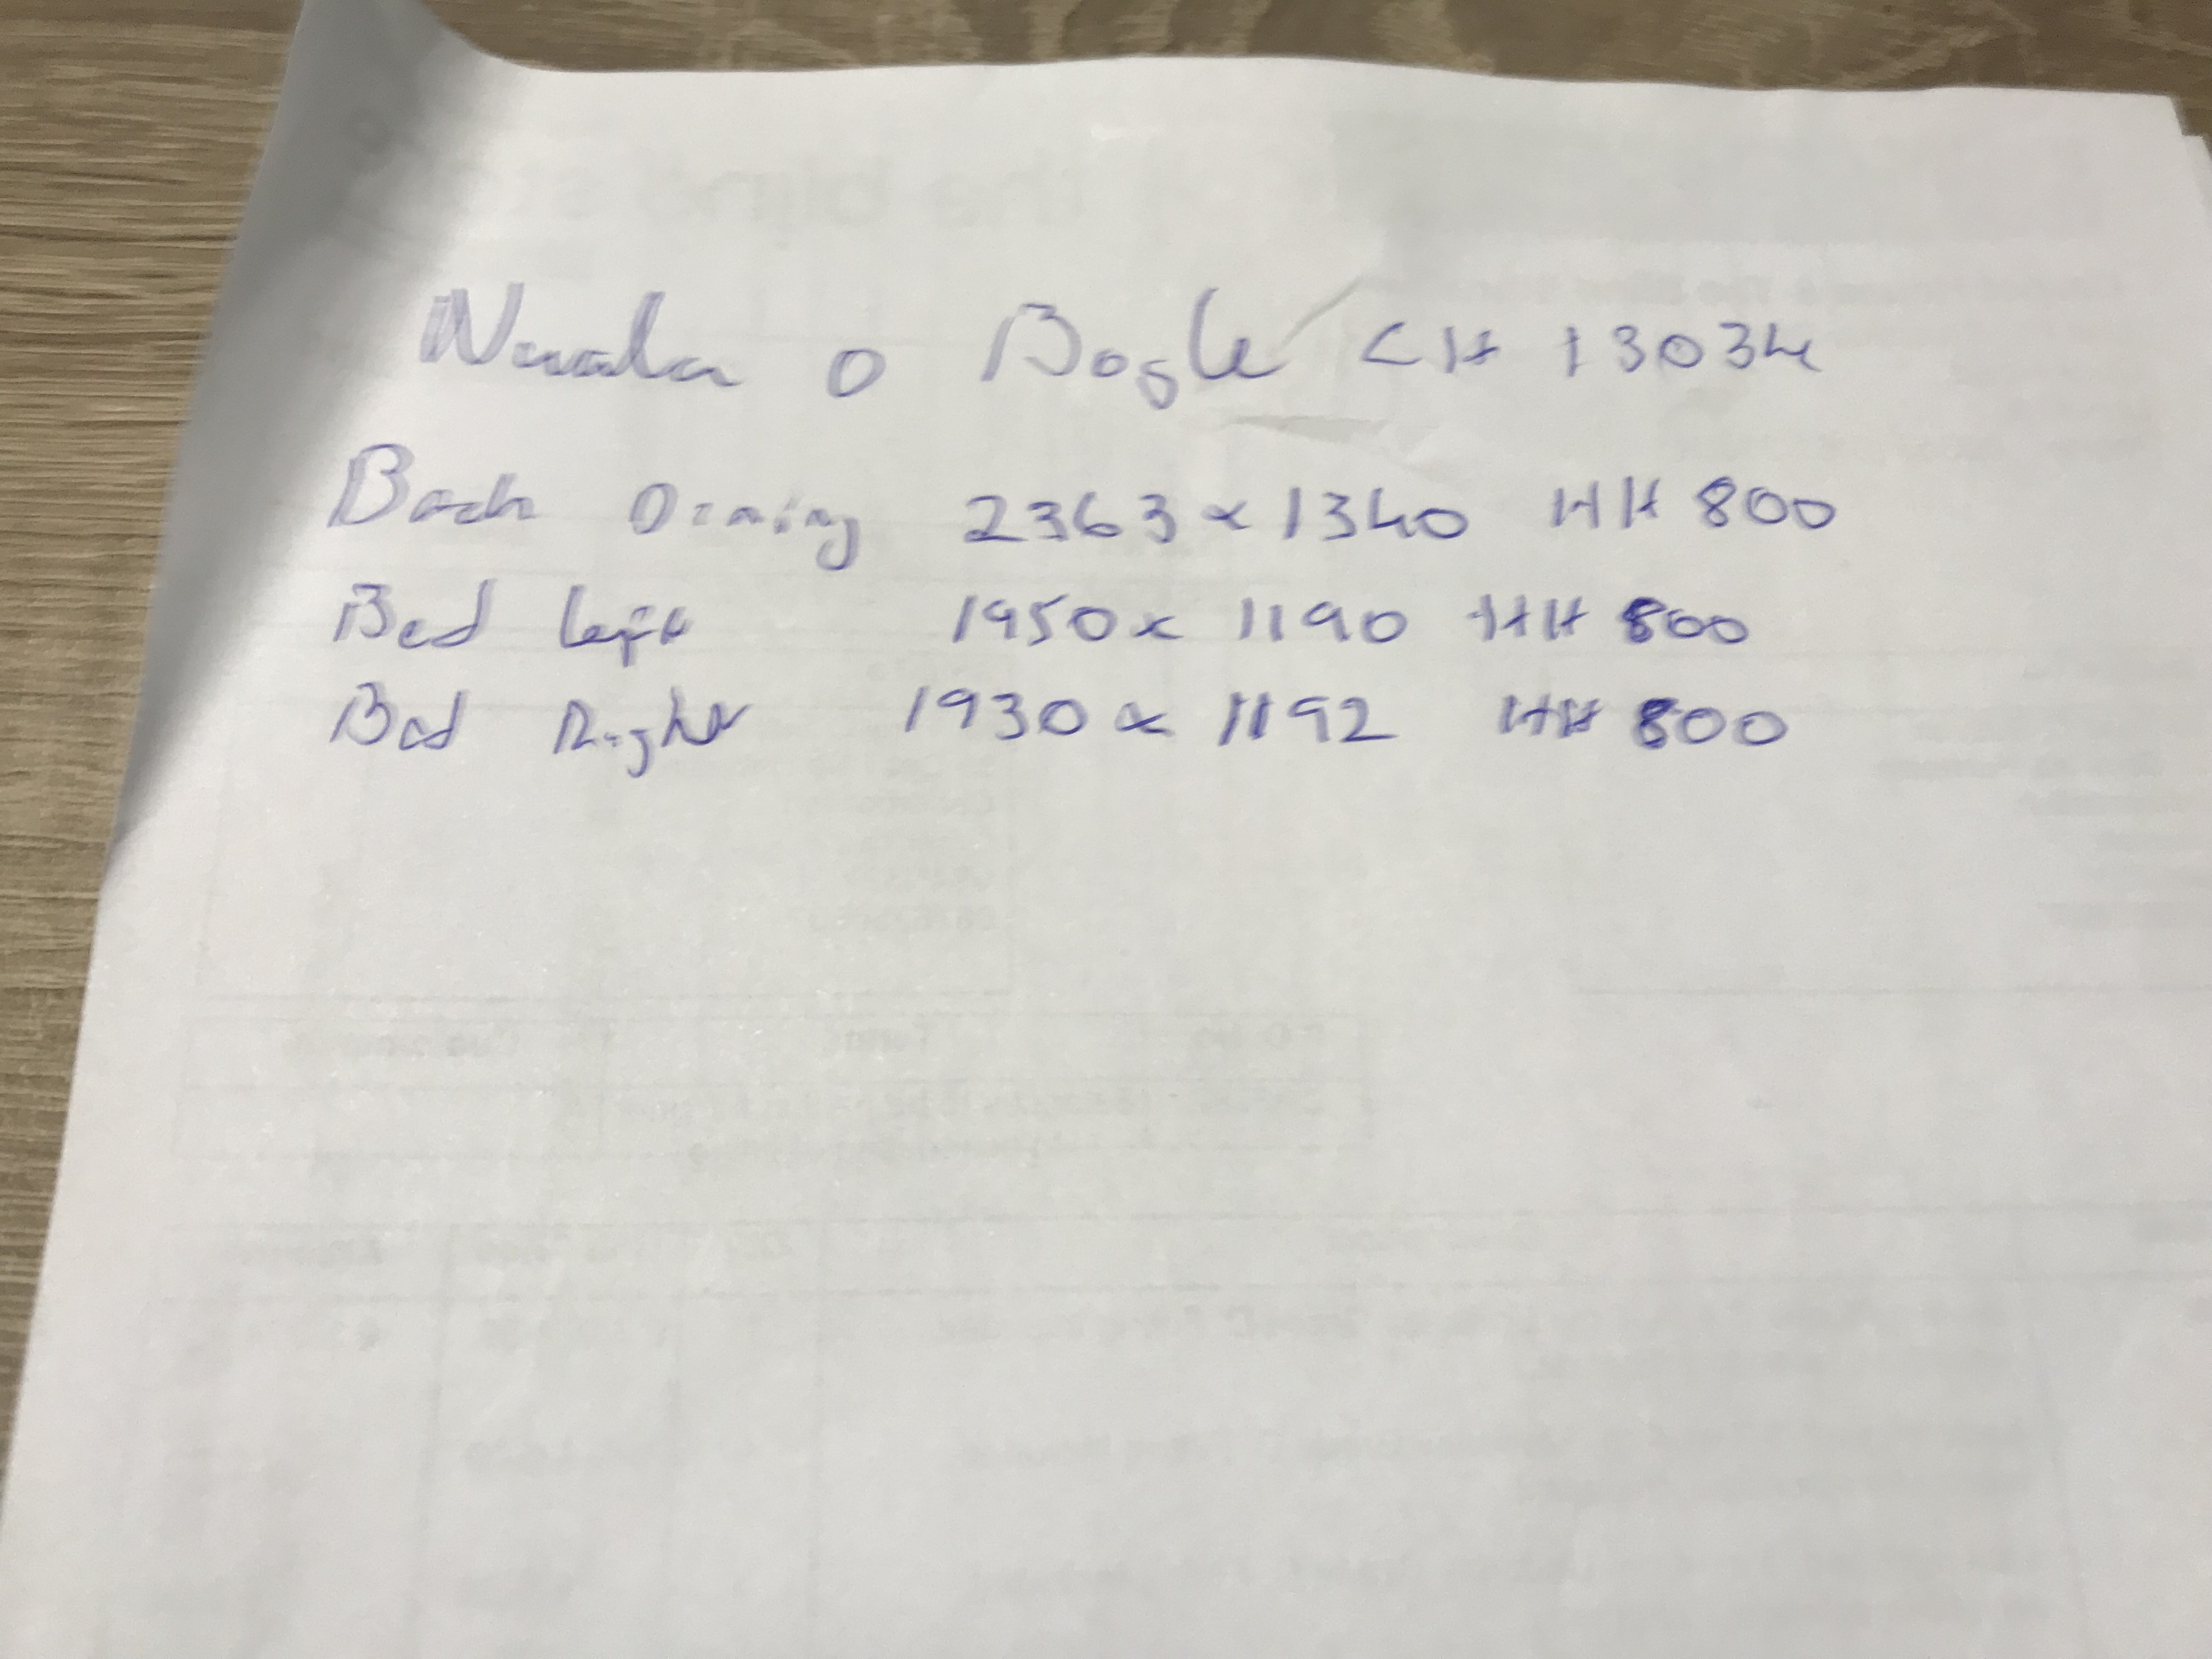 Nuala o Bogle CH 13034
Back Dining 2363 x 1340 HH 800
Bed Left 1950 x 1190 HH 800
Bed Right 1930 x 1192 HH 800